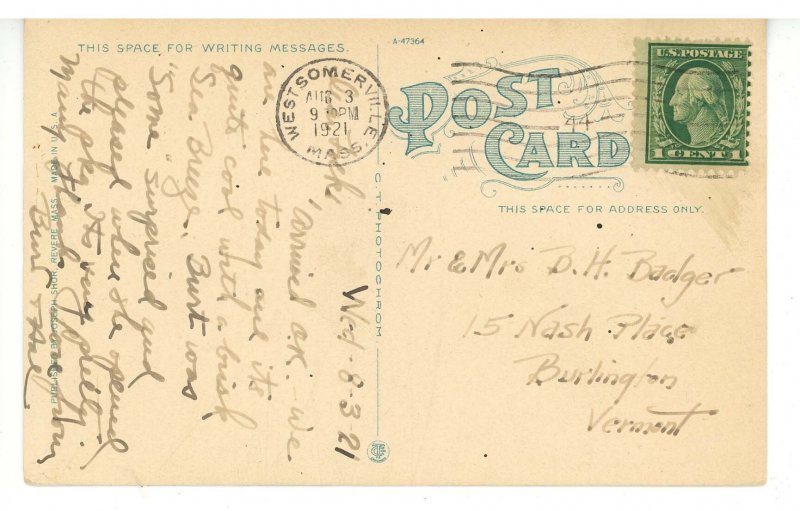 THIS SPACE FOR WRITING MESSAGES.
A-47364
POST CARD
THIS SPACE FOR ADDRESS ONLY.
WEST SOMERVILLE
AUG 3
PM
1921
MASS.
U.S. POSTAGE
1 CENT 1
Wed. 8-3-21
Arrived O.K. - We
are here today and its
quite cool with a brisk
Sea Breeze. Burt was
Some "surprised" and
pleased when he opened
the pkg. Its very pretty.
Many
Burt &
Mr & Mrs B. H. Badger
15 Nash Place
Burlington
Vermont
C. T. PHOTOCHROM
PUBLISHED BY JOSEPH SHOR, REVERE, MASS. MADE IN U.S.A.